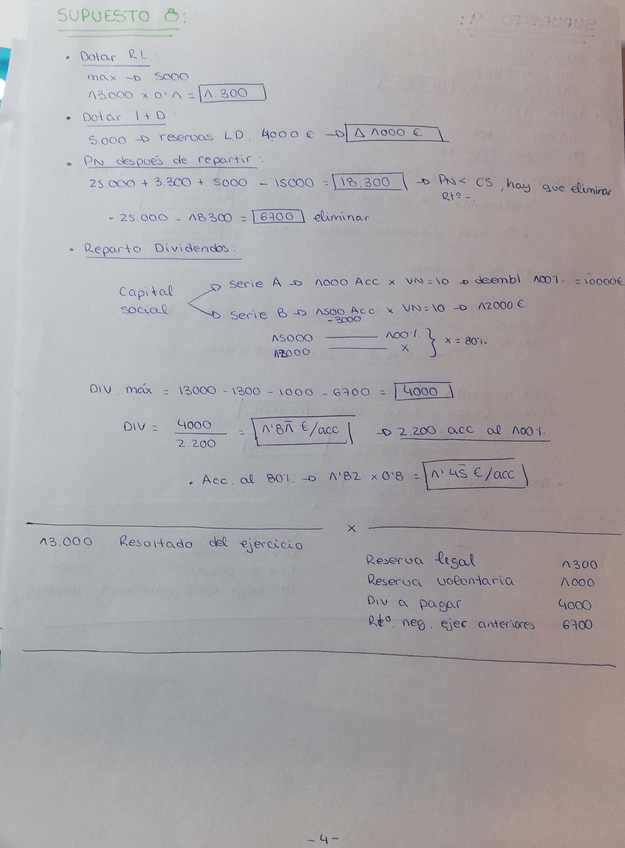 SUPUESTO 8:
• Dotar RL
máx → 5000
13.000 x 0'1 = 1.300
• Dotar I+D
5.000 → reservas LD. 4000 € → Δ 1000 €
• PN después de repartir:
25.000 + 3.300 + 5000 - 15000 = 18.300 → PN < CS, hay que eliminar
Rtº -.
- 25.000 - 18300 = 6700 eliminar
• Reparto Dividendos:
Capital social
Serie A → 1000 Acc x VN=10 → desembl 100%. = 10000€
Serie B → 1500 Acc x VN=10 → 12000 €
-3000
15000 —— 100%.
12000 —— x
} x = 80%.
DIV máx = 13000 - 1300 - 1000 - 6700 = 4000
DIV = 4000 / 2.200 = 1'81 €/acc → 2.200 acc al 100%.
• Acc. al 80%. → 1'82 x 0'8 = 1'45 €/acc
x
13.000 Resultado del ejercicio
Reserva legal 1300
Reserva voluntaria 1000
Div a pagar 4000
Rtº. neg. ejer anteriores 6700
-4-